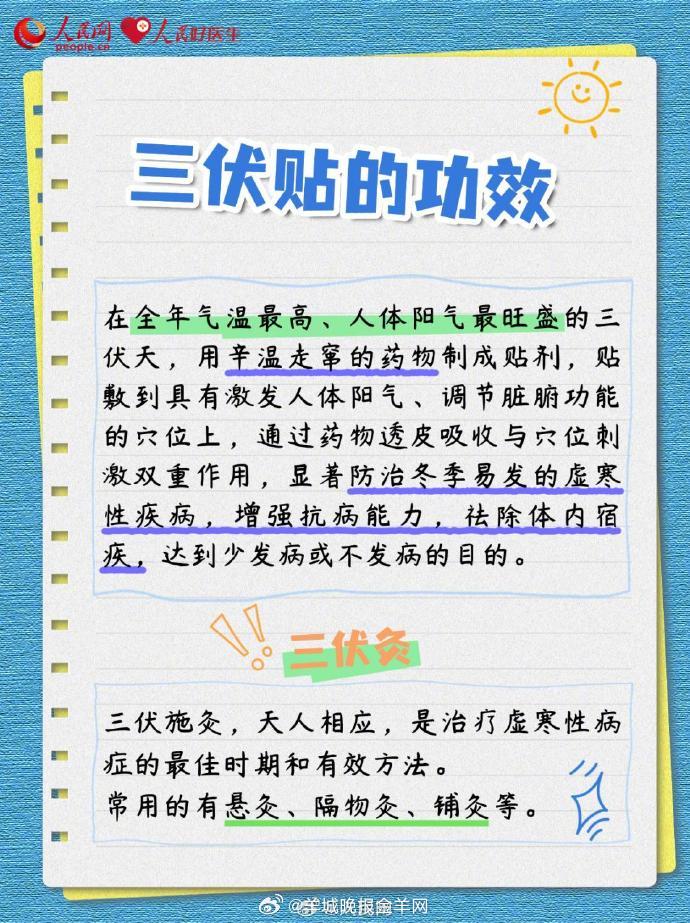 人民网
people.cn
人民好医生
三伏贴的功效
在全年气温最高、人体阳气最旺盛的三
伏天，用辛温走窜的药物制成贴剂，贴
敷到具有激发人体阳气、调节脏腑功能
的穴位上，通过药物透皮吸收与穴位刺
激双重作用，显著防治冬季易发的虚寒
性疾病，增强抗病能力，祛除体内宿
疾，达到少发病或不发病的目的。
三伏灸
三伏施灸，天人相应，是治疗虚寒性病
症的最佳时期和有效方法。
常用的有悬灸、隔物灸、铺灸等。
@羊城晚报金羊网